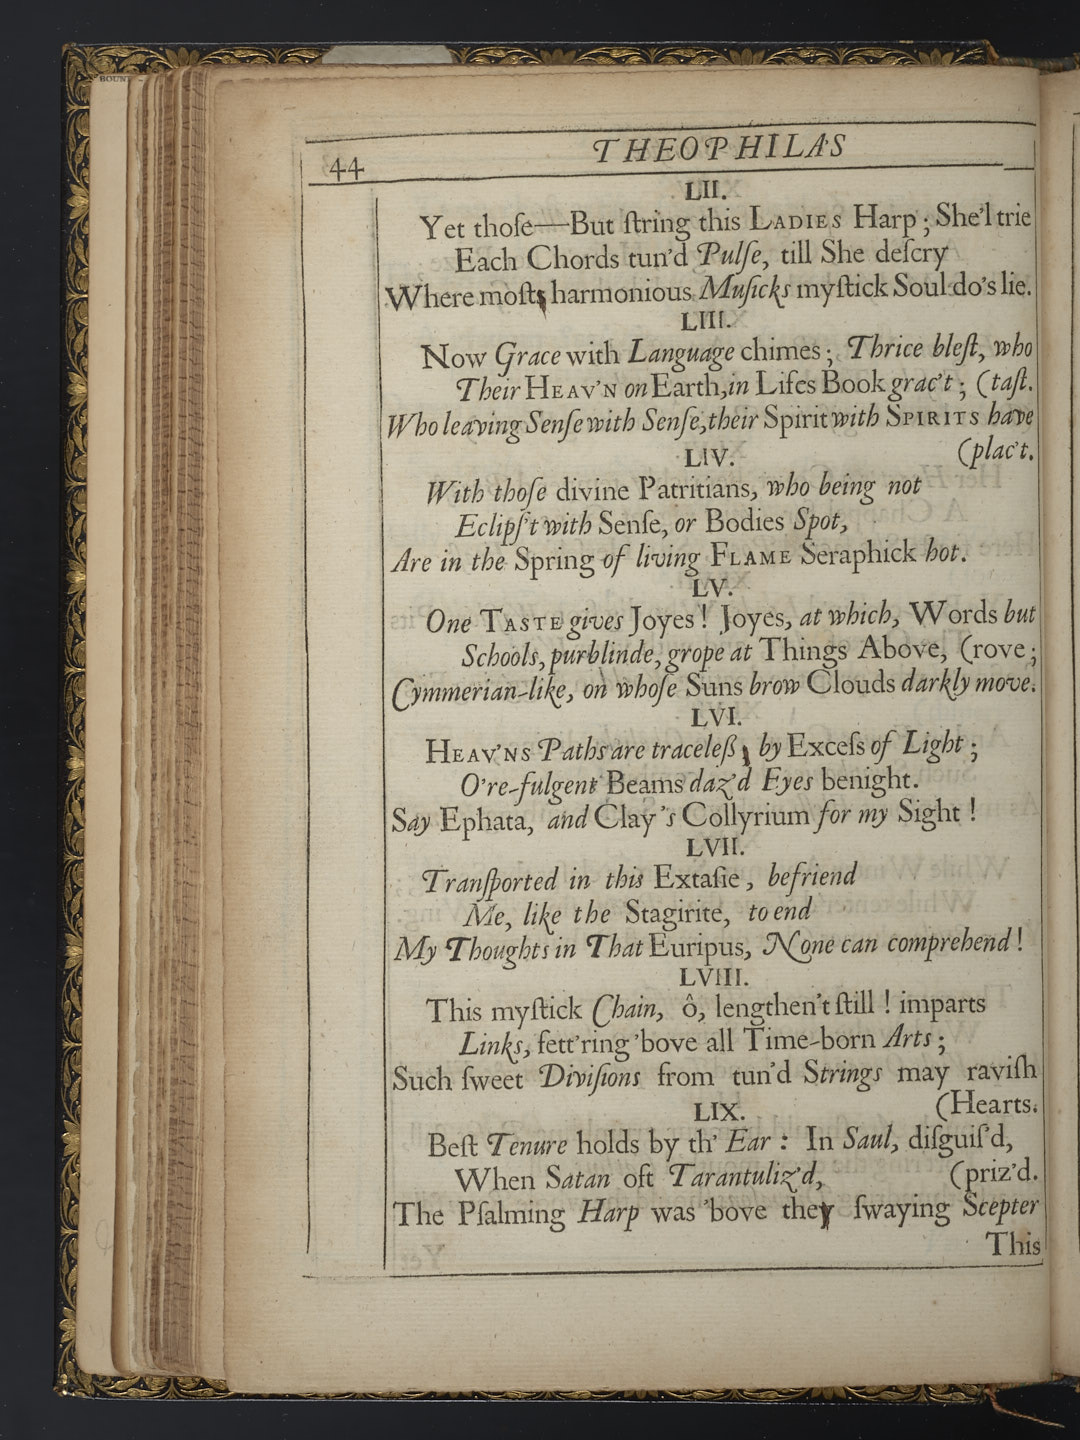 BOUN
44 THEOPHILA'S
LII.
Yet thoſe—But ſtring this LADIES Harp; She'l trie
Each Chords tun'd Pulſe, till She deſcry
Where moſt harmonious Muſicks myſtick Soul do's lie.
LIII.
Now Grace with Language chimes; Thrice bleſt, who
Their HEAV'N on Earth, in Lifes Book grac't; (taſt.
Who leaving Senſe with Senſe, their Spirit with SPIRITS have
(plac't.
LIV.
With thoſe divine Patritians, who being not
Eclipſ't with Senſe, or Bodies Spot,
Are in the Spring of living FLAME Seraphick hot.
LV.
One TASTE gives Joyes! Joyes, at which, Words but
Schools, purblinde, grope at Things Above, (rove;
Cymmerian-like, on whoſe Suns brow Clouds darkly move.
LVI.
HEAV'NS Paths are traceleß, by Exceſs of Light;
O're-fulgent Beams daz'd Eyes benight.
Say Ephata, and Clay's Collyrium for my Sight!
LVII.
Tranſported in this Extaſie, befriend
Me, like the Stagirite, to end
My Thoughts in That Euripus, None can comprehend!
LVIII.
This myſtick Chain, ô, lengthen't ſtill! imparts
Links, fett'ring 'bove all Time-born Arts;
Such ſweet Diviſions from tun'd Strings may raviſh
(Hearts.
LIX.
Beſt Tenure holds by th' Ear: In Saul, diſguiſ'd,
When Satan oft Tarantuliz'd, (priz'd.
The Pſalming Harp was 'bove the ſwaying Scepter
This